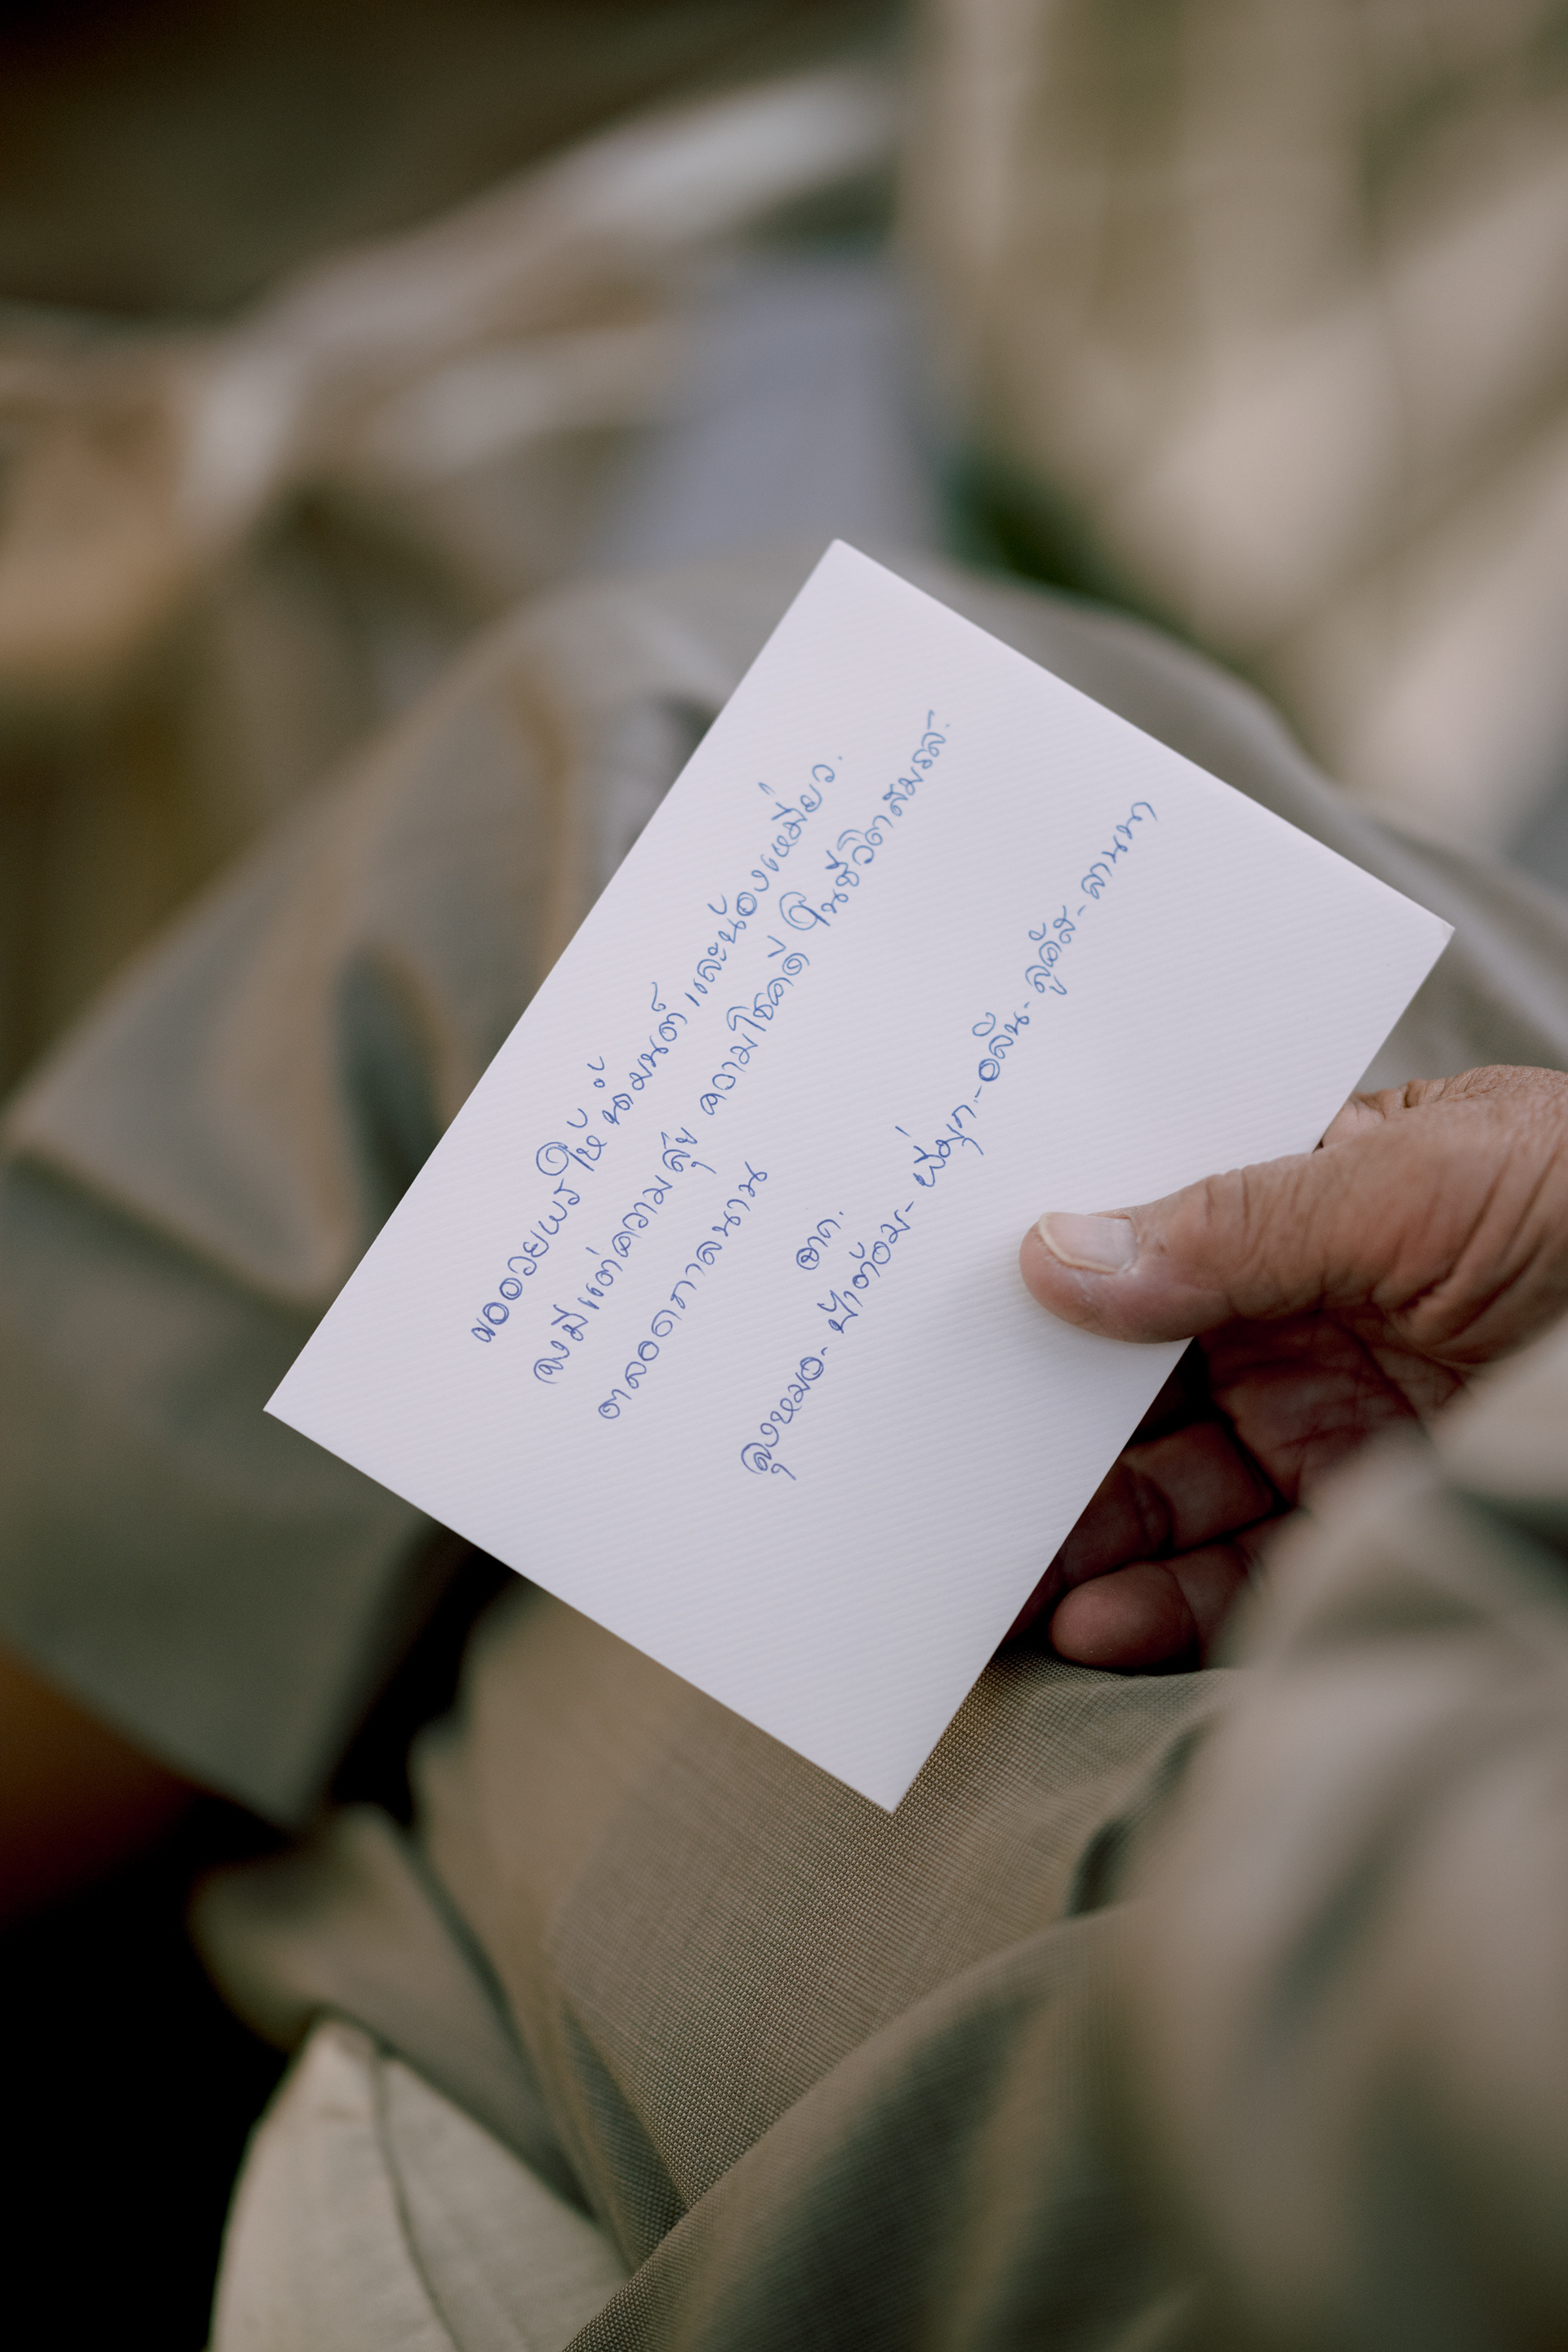 ขออวยพรให้ น้ำมนต์ และน้องเหมี่ยว.
จงมีแต่ความสุข ความโชคดี ในชีวิตสมรส.
ตลอดกาลนาน
จาก.
ลุงหมอ- ป้าต้อม- -อลิน- ลูคัส- ลานนา